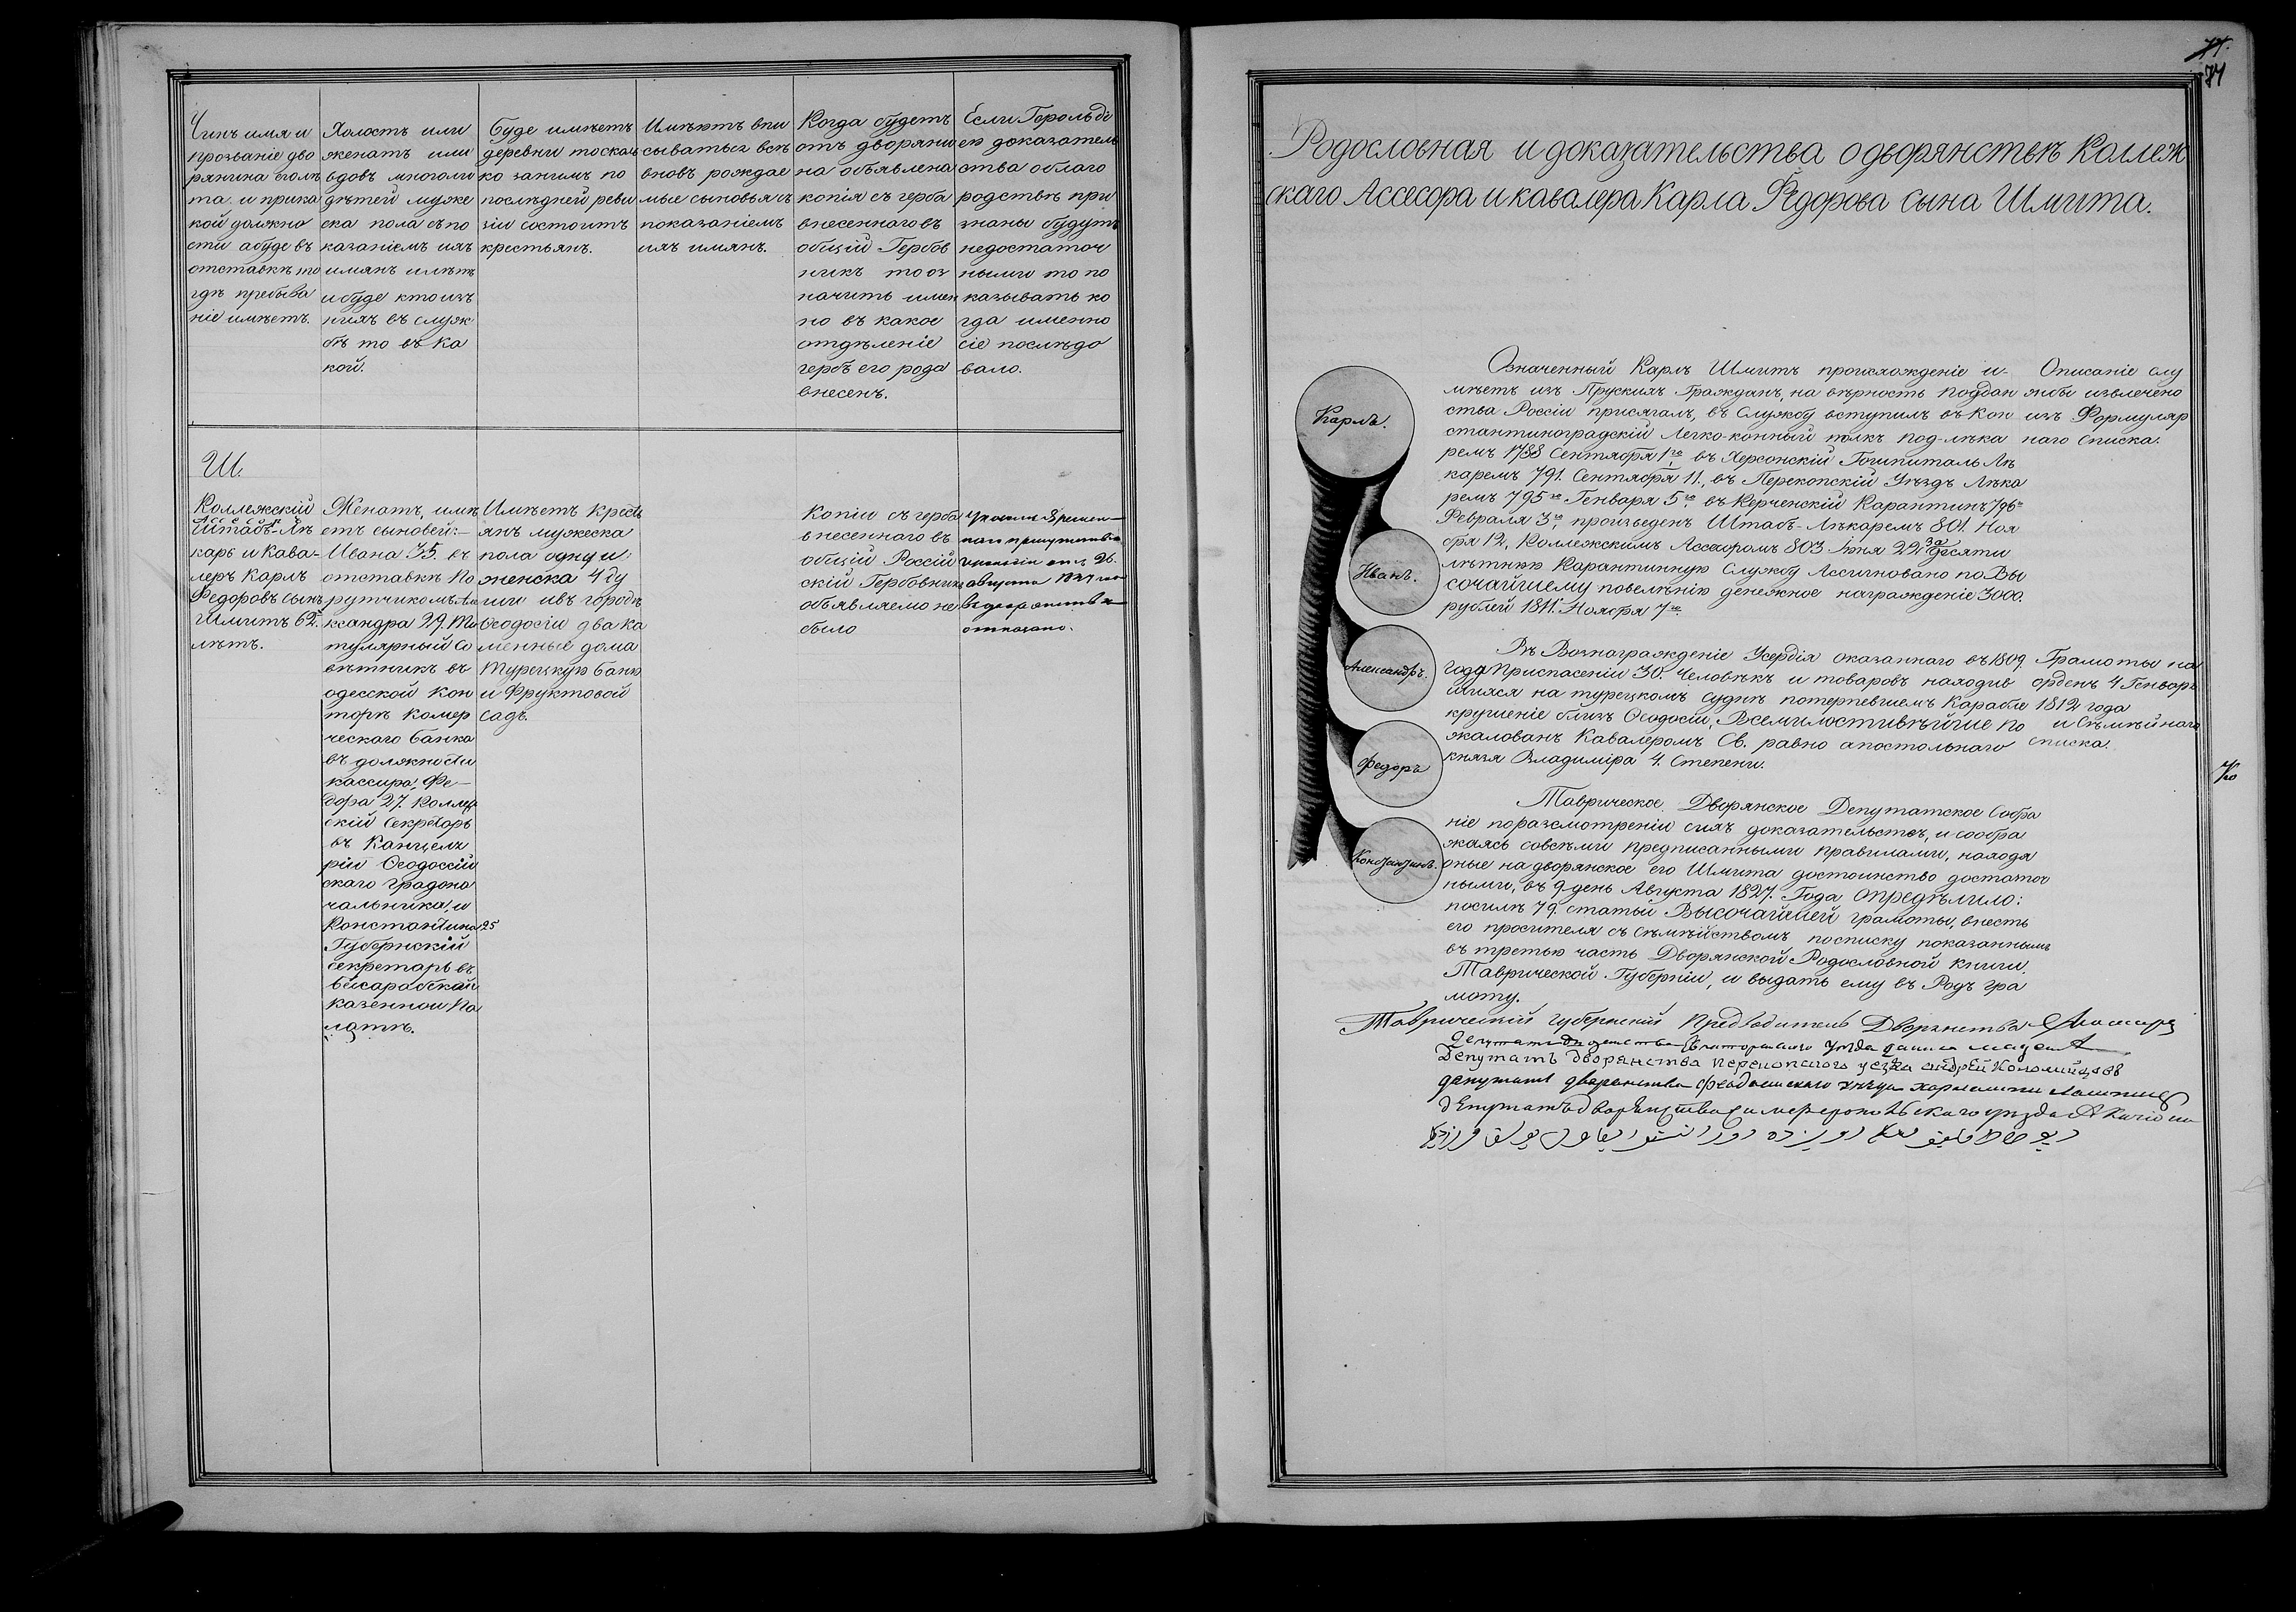 Чинъ имя и
прозваніе дво
рянина сколь
та. и прика
кой должно
сти абуде въ
отставкѣ то
гдѣ пребыва
ніе имѣетъ.
Холостъ или
женатъ или
вдовъ многоли
дѣтей муже
ска пола съпо
казаніемъ ихъ
имянъ и лѣтъ
и буде ктоизъ
нихъ въ служ
бѣ то въ ка
кой.
Буде имѣетъ
деревни тоскол
ко занимъ по
послѣдней реви
зіи состоитъ
крестьянъ.
Имѣютъ впи
сыватьсь всѣ
вновь рождае
мые сыновья съ
показаніемъ
ихъ имянъ.
Когда будетъ
отъ дворяни
на объявлена
копія съ герба
внесеннаго въ
общій Гербов
никъ то оз
начить имен
но въ какое
отдѣленіе
гербъ его рода
внесенъ.
Если Герольдіе
ею доказатель
ства облаго
родствѣ при
знаны будутъ
недостаточ
ными то по
казывать ко
гда именно
сіе послѣдо
вало.
Ш.
Коллежскій
Ассесоръ
Штабъ-Лѣ
карь и Кава-
леръ Карлъ
Федоровъ сынъ
Шмитъ 62.
лѣтъ.
Женатъ, имѣ
етъ сыновей:—
Ивана 35. въ
отставкѣ По
рутчикомъ Але
ксандра 29. Ти
тулярный Со
вѣтникъ въ
одесской Кон
торѣ Комер
ческаго банка
въ должности
кассира, Фе-
дора 27. Коллеж
скій Секретарь
въ Канцеля
ріи Ѳеодоссій
скаго Градона
чальника, и
Константина 25
Губернскій
секретарь въ
бессарабской
казенной Па
латѣ.
Имѣетъ Кресть
янъ мужеска
пола одну и
женска 4 ду
ши ивъ городѣ
Ѳеодосіи два ка
менные дома
Турецкую баню
и Фруктовой
садъ.
Копіи съ герба
внесеннаго въ
общій Россій
скій Гербовникъ
объявляемо не
было
Указомъ Времен-
наго присутствія
Герольдіи отъ 26.
августа 1827 года
въдворянствѣ
отказано.
74
Родословная и доказательства о дворянствѣ Коллеж
скаго Ассесора и кавалера Карла Ѳедорова сына Шмита.
Карлъ.
Иванъ.
Александръ.
Федоръ
Константинъ.
Означенный Карлъ Шмитъ происхожденіе и-
мѣетъ изъ Прускихъ Гражданъ, на вѣрность подан
ства Россіи присягалъ, въ службу вступилъ въ Кон
стантиноградскій Легко-конный полкъ под-лѣка
ремъ 1788 Сентября 1го въ Херсонскій Гошпиталь Лѣ
каремъ 791. Сентября 11., въ Перекопскій Уѣздъ Лѣка
ремъ 795го Генваря 5го въ Керченскій Карантинъ 796го
Февраля 3го произведенъ Штабъ-Лѣкаремъ 801. Ноя
бря 12, Коллежскимъ Ассесоромъ 803 Іюня 22, за десяти
лѣтнюю Карантинную службу Ассигновано по Вы
сочайшему повелѣнію денежное награжденіе 3000.
рублей 1811. Ноября 7го
Описаніе слу
жбы извлечено
изъ Формуляр
наго списка.
Въ Вознагражденіе Усердія оказаннаго въ 1809.
года приспасеніи 30. Человѣкъ и товаровъ находив
шихся на турецкомъ суднѣ потерпевшемъ Карабле
крушеніе близъ Ѳеодосіи, Всемилостивѣйше по
жалованъ Кавалеромъ Св. равно апостольнаго
князя Владиміра 4. Степени.
Грамоты на
орденъ 4 Генворя
1812 года
и Семѣйнаго
списка.
Таврическое Дворянское Депутатское Собра
ніе поразсмотреніи сихъ доказательствъ, и сообра
жаясь совсѣми предписанными правилами, находя
оные на дворянское его Шмита достоинство достаточ
ными, въ 9 день Августа 1827. Года опредѣлило:
посилѣ 79. статьи Высочайшей грамоты, внесть
его просителя съ Семѣйствомъ посписку показаннымъ
въ третью часть Дворянской Родословной книги.
Таврической Губерніи, и выдать ему въ Родъ гра
моту.
Таврическій губернскій Предводитель Дворянства
Депутатъ дворянства Евпаторійскаго уѣзда
Депутатъ дворянства перекопского уезда андрей Коломийцовъ
депутатъ дворянства феодосійского уѣзда
депутатъ дворянства симферопольскаго уезда